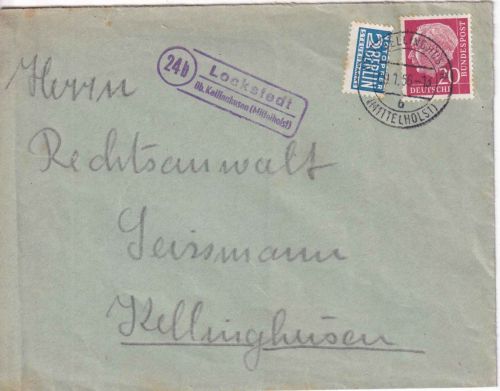 24b
Lockstedt
üb. Kellinghusen (Mittelholst)
NOTOPFER
2 BERLIN
STEUERMARKE
20
DEUTSCHE
BUNDESPOST
(MITTELHOLST)
b
Herrn
Rechtsanwalt
Seissmann
Kellinghusen